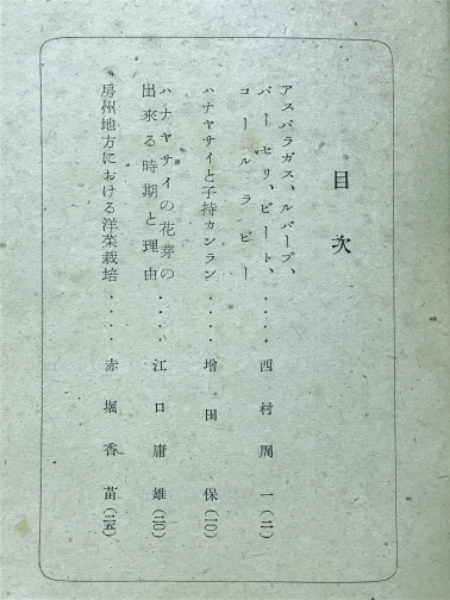 目次
アスパラガス、ルバーブ、
パーセリ、ビート、
コールラビー
・・・・西村周一(二)
ハナヤサイと子持カンラン・・・・増田保(一〇)
ハナヤサイの花芽の
出來る時期と理由・・・・江口庸雄(二〇)
房州地方における洋菜栽培・・・・赤堀香苗(二五)